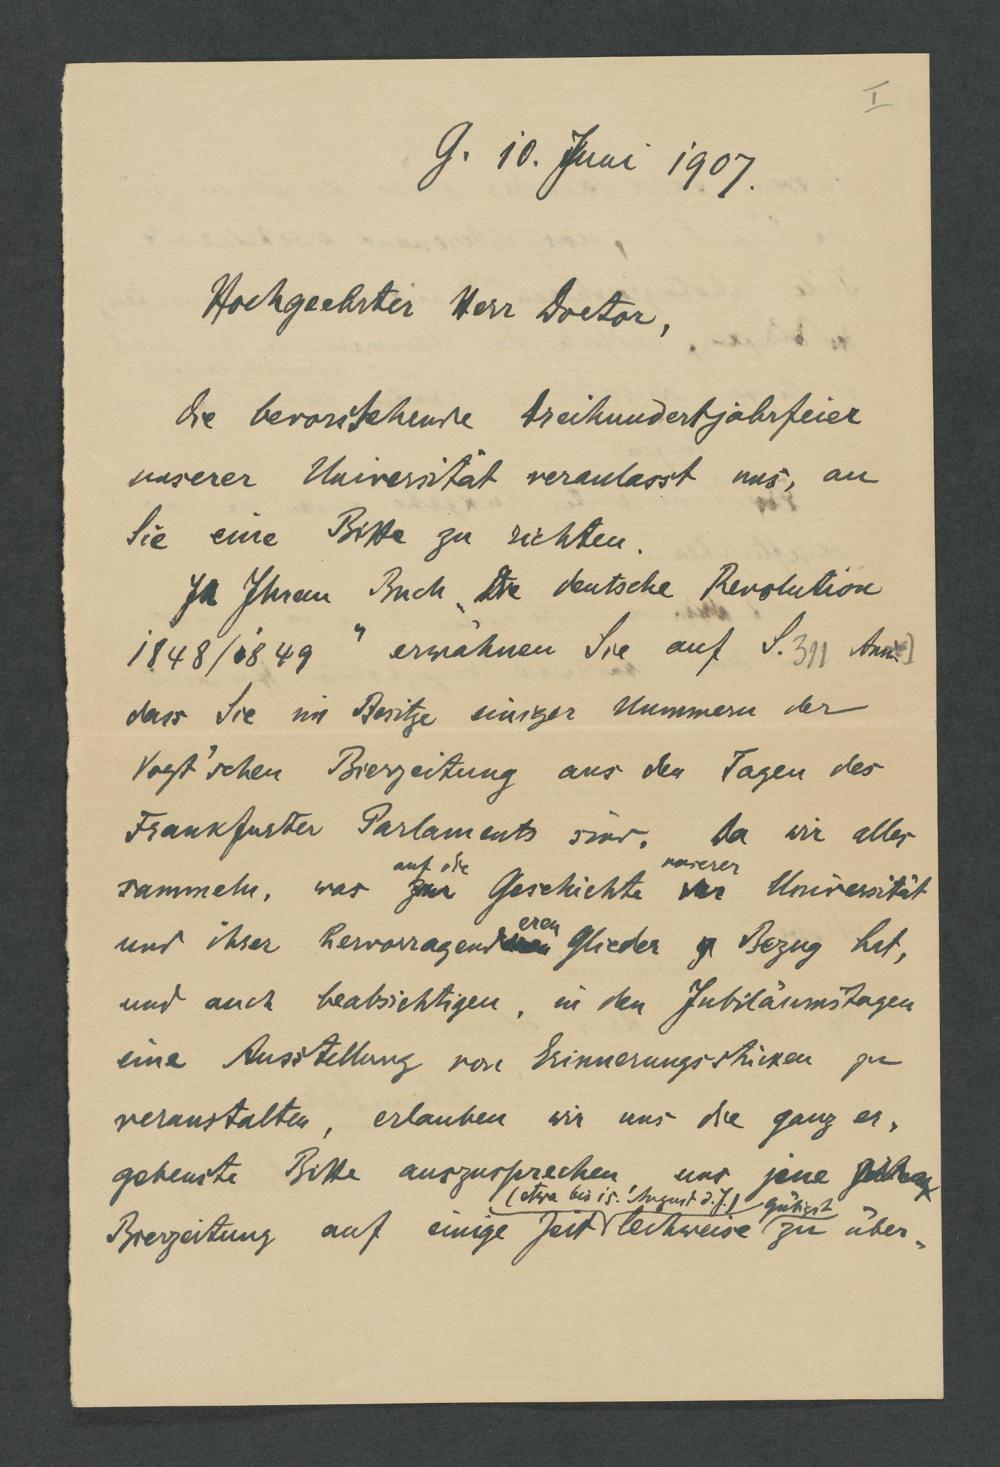 I
G. 10. Juni 1907.
Hochgeehrter Herr Doctor,
die bevorstehende Dreihundertjahrfeier
unserer Universität veranlasst uns, an
Sie eine Bitte zu richten.
In Ihrem Buch „Die deutsche Revolution
1848/1849" erwähnen Sie auf S. 311 Anm.
dass Sie im Besitze einiger Nummern der
Vogt'schen Bierzeitung aus den Tagen des
Frankfurter Parlaments sind. Da wir alles
auf die unserer
sammeln, was zur Geschichte der Universität
eren
und ihrer hervorragend Glieder Bezug hat,
und auch beabsichtigen, in den Jubiläumstagen
eine Ausstellung von Erinnerungsstücken zu
veranstalten, erlauben wir uns die ganz er-
gebenste Bitte auszusprechen uns jene
(etwa bis 15. August d. J.) gütigst
Bierzeitung auf einige Zeit leihweise zu über-